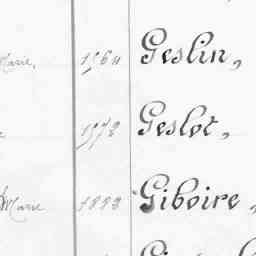 Marie, 1964 Geslin,
1972 Geslot,
Marie 1883 Giboire,